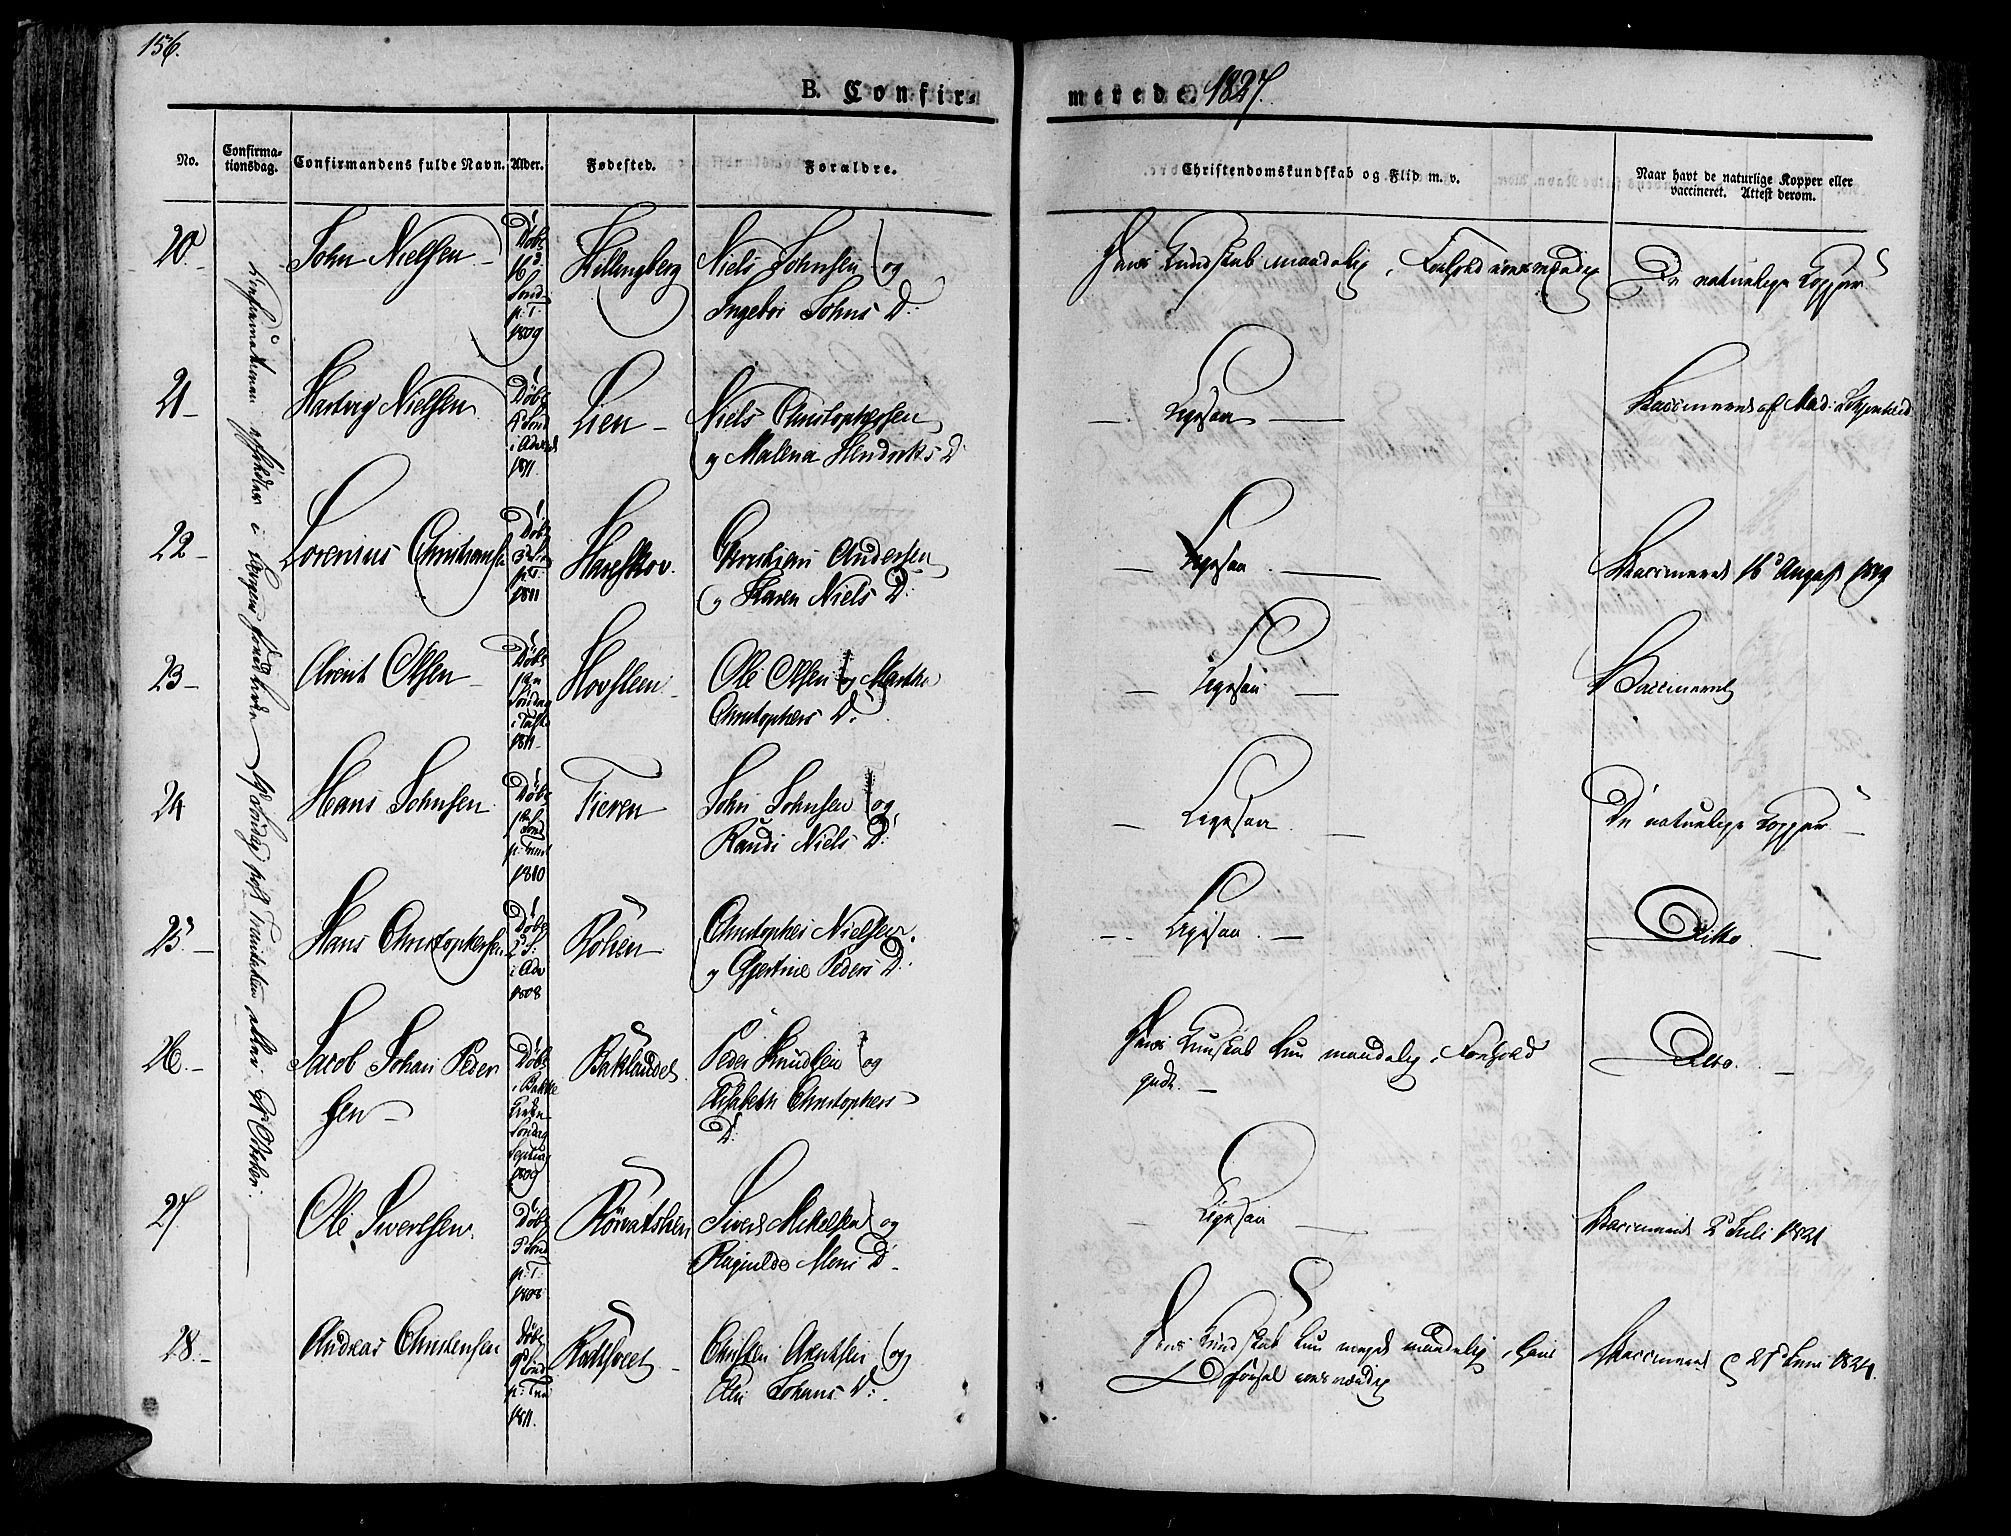 156.
B. Confir-
merede. 1827.
No.
Confirma-
tionsdag.
Confirmandens fulde Navn.
Alder.
Fødested.
Forældre.
Christendomskundskab og Flid m. v.
Naar havt de naturlige Kopper eller
vaccineret. Attest derom.
Confirmationen i Søndag post Trinitatis October.
20.
John Nielsen
Døbt
16d
Sønd
p: T.
1809
Hillingberg
Niels Johnsen og
Ingebor Johns D:
Hans Kundskab maadelig, Forhold
De naturlige Kopper
21
Hartvig Nielsen
Døbt
Sønd
i Advent
1811.
Lien
Niels Christophersen
og Malena Hendriks D
Ligesaa
Vaccineret af Mad:
22
Lorentius Christiansen
Døbt
p: T.
1811
Hareskov.
Christian Andersen
og Karen Niels D:
Ligesaa
Vaccineret 16d August 1819
23
Arent Olsen
Døbt
Søndag
i Faste
1811
Hovsteen
Ole Olsen og Marthe
Christophers D:
Ligesaa
Vaccineret
24
Hans Johnsen
Døbt
Sønd
p: Trinit
1810
Tieren
John Johnsen og
Randi Niels D:
Ligesaa
De naturlige Kopper
25
Hans Christophersen
Døbt
2d S:
i Adv
1808
Røhen
Christopher Nielsen
og Gjertine Peders D:
Ligesaa
Ditto
26
Jacob Johan Peder
sen
Døbt
i Bakke
Kirke
Søndag
1809
Baklandet
Peder Knudsen og
Elisabeth Christophers
D:
Hans Kundskab kun maadelig, Forhold
godt.
Ditto.
27
Ole Sivertsen
Døbt
Sønd
p: T:
1808
Sivert Mikelsen og
Ragnilde Mons D
Ligesaa
Vaccineret 2d Juli 1821
28
Andreas Christensen
Døbt
9d Sønd
p: Trin
1811.
Christen Arentsen og
Johans D:
Hans Kundskab kun meget maadelig, hans
Vaccineret Juni 1824